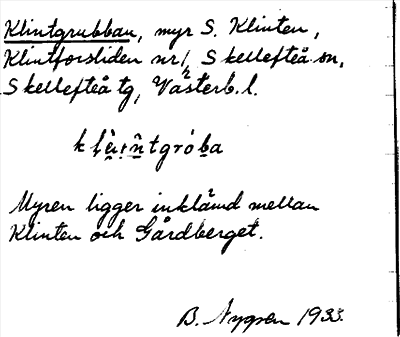 Klintgrubban, myr S. Klinten,
Klintforsliden nr 1, Skellefteå sn,
Skellefteå tg, Västerb. l.
Myren ligger inklämd mellan
Klinten och Gårdberget.
B. Nygren 1933.